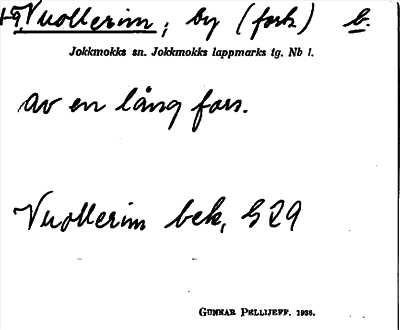 Vuollerim; by (fork) b.
Jokkmokks sn. Jokkmokks lappmarks tg. Nb l.
av en lång fors.
Vuollerim bek, G 29
GUNNAR PELLIJEFF. 1936.